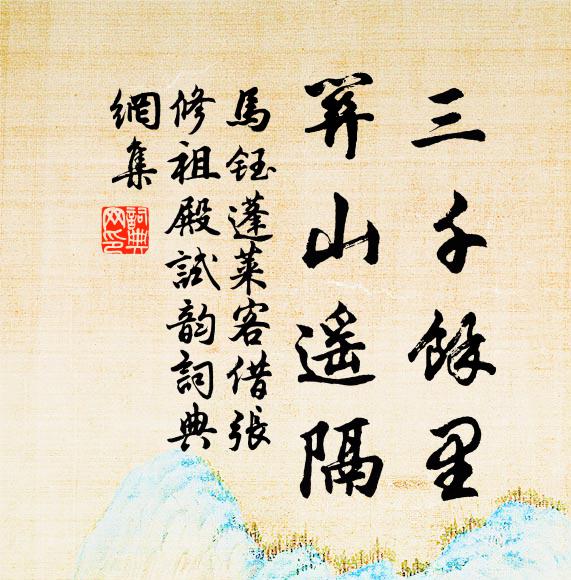 三千餘里
關山遥隔
馬鈺蓬萊客借張
修祖殿試韵詞典
網集
詞典
网印